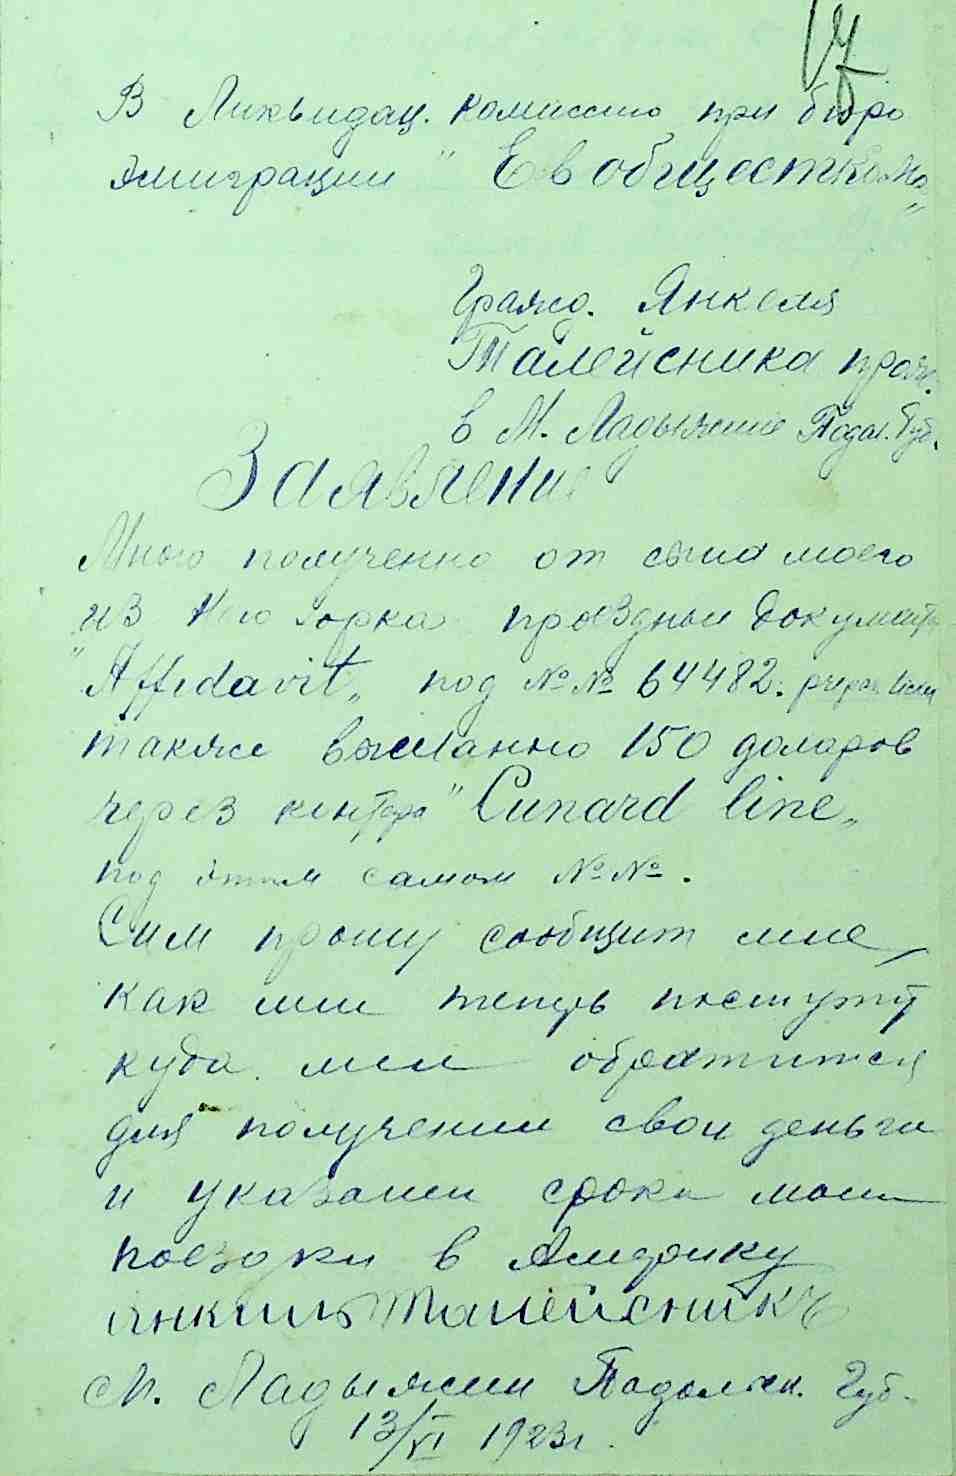 17
В Ликьидац. комиссию при бюро
эмиграции "Евобщесткома"
Гражд. Янкеля
Талейсника прож.
в М. Ладыжине Подол. Губ.
Заявление
Мною полученно от сына моего
из Нью Иорка проездныи документы
"Affidavit" под №№ 64482.
также высланно 150 доларов
через контору "Cunard line"
под этим самом №№.
Сим прошу сообщит мне,
как мни теперь поступит
куда мни обратится
для получении свои деньги
и указании сроки моеи
поездки в Америку
Янкиль Талейсникъ
М. Ладыжин Подольск. Губ.
13/VI 1923г.